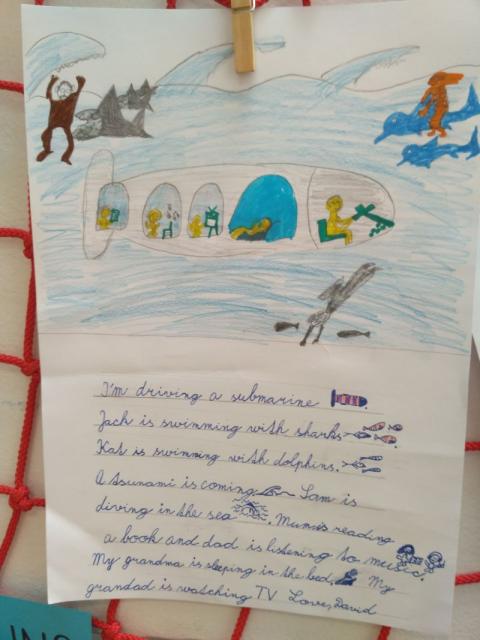 I'm driving a submarine.
Jack is swimming with sharks.
Kat is swimming with dolphins.
A tsunami is coming. Sam is
diving in the sea. Mum is reading
a book and dad is listening to music.
My grandma is sleeping in the bed. My
grandad is watching TV Love, David